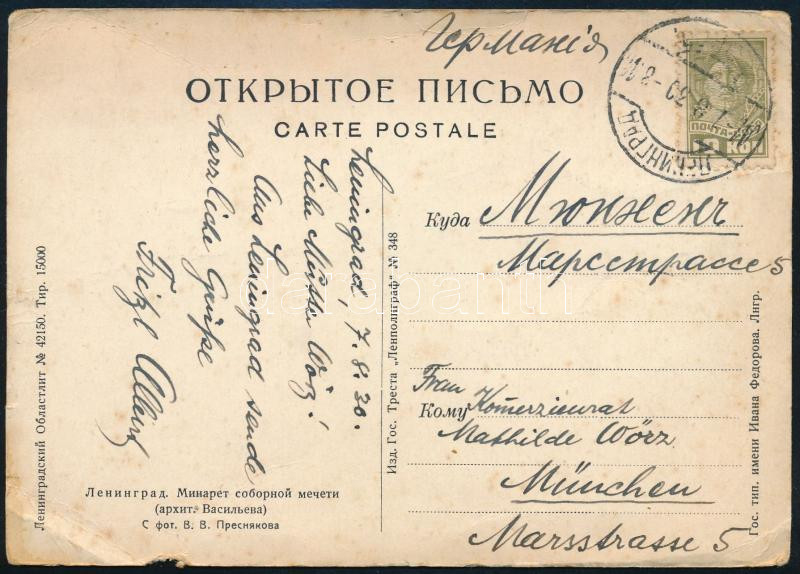 Германія
ОТКРЫТОЕ ПИСЬМО
CARTE POSTALE
ЛЕНИНГРАД
ПОЧТА
Leningrad, 7. 8. 30.
Liebe Mutter Wörz!
Aus Leningrad sende
herzliche Grüße
Куда Мюнхенъ
Марсстрассе 5
Frau
Кому Komerzienrat
Mathilde Wörz
München
Marsstrasse 5
Ленинград. Минарет соборной мечети
(архит. Васильева)
С фот. В. В. Преснякова
Ленинградский Областлит № 42150. Тир. 15000
Изд. Гос. Треста „Ленполиграф“ № 348
Гос. тип. имени Ивана Федорова. Лнгр.
darabanth